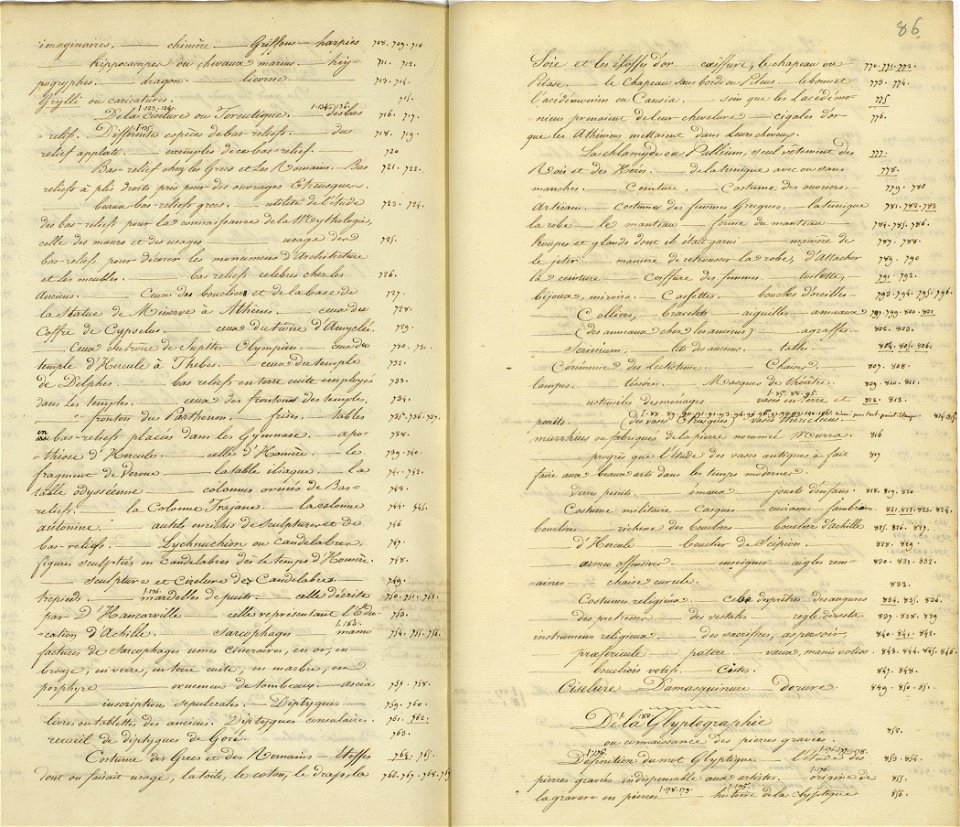 imaginaires. — chimère — Griffons — harpies 708. 709. 710
— hippocampes ou chevaux marins. — hip- 711. 712.
pogryphes. — dragon — licorne 713. 714.
Grylli ou caricatures. 715.
De la Ciselure ou Toreutique. — des bas 716. 717.
-reliefs. Différentes espèces de bas-reliefs. — du 718. 719.
relief applati. — exemples de ce bas-relief. — 720
Bas-relief chez les Grecs et les Romains. — Bas 721. 722.
reliefs à plus droits pris pour des ouvrages Etrusques.
beaux bas-reliefs grecs. — utilité de l'étude 723. 724.
des bas-reliefs pour la connaissance de la Mythologie,
celle des mœurs et des usages — usage des 725.
bas-reliefs pour décorer les monumens d'Architecture
et les meubles. — bas reliefs celebres chez les 726.
anciens. — Ceux des boucliers et de la base de 727.
la Statue de Minerve à Athènes. — ceux du 728.
Coffre de Cypselus. — ceux du trône d'Amyclée. 729.
— Ceux du trone de Jupiter Olympien. — ceux du 730. 731.
temple d'Hercule à Thèbes. — ceux du temple 732.
de Delphes. — bas reliefs en terre cuite employés 733.
dans les temples. — ceux des frontons des temples, 734.
— fronton du Parthenon. — frises. — tables 735. 736. 737.
en bas-reliefs placés dans les Gymnase. — apo- 738.
théose d'Hercule. — celle d'Homère. — le 739. 740.
fragment de Verone — la table iliaque. — la 741. 742.
table odysséenne — colonnes ornées de Bas- 743.
reliefs. — la Colonne Trajane. — la colonne 744. 745.
antonine — autels enrichis de sculptures et de 746
bas-reliefs. — Lychnuchion ou Candelabres. 747.
figures sculptées en Candelabres dès le temps d'Homère. 748.
— sculpture et Ciselure des Candelabres. — 749.
trepieds. — mardelles de puits. — celle décrite 750. 751. 752.
par D'Hancarville — celle représentant l'Edu- 753.
-cation d'Achille. — Sarcophages — manu 754. 755. 756.
factures de Sarcophages urnes Cineraires, en or, en
bronze, en verre, en terre cuite, en marbre, en
porphyre — ornemens de tombeaux. — ascia 757. 758.
— inscriptions sepulcrales. — Diptyques — 759. 760.
livres ou tablettes des anciens. Diptyques consulaires. 761. 762.
recueil de diptyques de Gori. 763.
Costume des Grecs et des Romains — étoffes 764. 765.
dont on faisait usage, la toile, le coton, le drap, la 766. 767. 768. 769
86
Soie et les étoffes d'or — coëffure, le chapeau ou — 770. 771. 772.
Petase. — le Chapeau sans bord ou Pileus. — le bonnet 773. 774.
lacédémonien ou Causia. — soin que les Lacédémo- 775
niens prenaient de leur chevelure — cigales d'or 776.
que les Athéniens mettaient dans leurs cheveux.
La chlamyde ou Pallium, seul vêtement des 777.
Rois et des Héros. — de la tunique avec ou sans 778.
manches. — Ceinture. — Costume des ouvriers. 779. 780
Artisans. — Costumes des femmes Grecques. — la tunique 781. 782. 783
la robe — le manteau — forme du manteau — 784. 785. 786.
houpes et glands dont il était garni — manière de 787. 788.
le jeter. — manière de retrousser la robe, d'attacher 789. 790
la ceinture — Coiffure des femmes — toilette, — 791. 792.
bijoux, miroirs. — Cassettes. — boucles d'oreilles — 793. 794. 795. 796.
Colliers, bracelets — aiguilles — anneaux 797. 799. 800. 801.
(des anneaux chez les anciens) — agraffes. 802. 803.
Scrinium. — lits des anciens. — table. 804. 805. 806.
Cérémonie des Lectisterne. — Chaises, — 807. 808.
lampes. — tésères. — Masques de théâtre. 809. 810. 811.
ustensiles de menages — vases en terre et 812. 813.
peints — (des vases Etrusques) — vases murrhins. —
murrhins ou fabriqués de la pierre nommée Murra. 816
— progrès que l'étude des vases antiques a fait 817
faire aux beaux arts dans les temps modernes.
Verres peints. — émaux — jouets d'enfans. 818. 819. 820
Costume militaire Casques — cuirasses 821. 822. 823. 824.
boucliers — richesse des boucliers — bouclier d'Achille 825. 826. 827.
— d'Hercule — bouclier de Scipion. — 828. 829.
— armes offensives — enseignes — aigles rom- 830. 831. 832.
-aines — chaise curule. 833.
Costumes religieux. — Celui des prêtres des augures 834. 835. 836.
— des pretresses — des vestales — regle du reste. 837. 838. 839
instrumens religieux. — des sacrifices, aspersoir, 840. 841. 842.
præfericule — patère. — vases, mains votives. 843. 844. 845. 846.
boucliers votifs. — Cistes. 847. 848.
Ciselure Damasquinure dorure. 849. 850. 851.
De la Glyptographie
ou connaissance des pierres gravées. 852.
Définition du mot Glyptique — l'étude des 853. 854.
pierres gravées indispensable aux artistes. — origine de 855.
la gravure en pierres — histoire de la Glyptique 856.